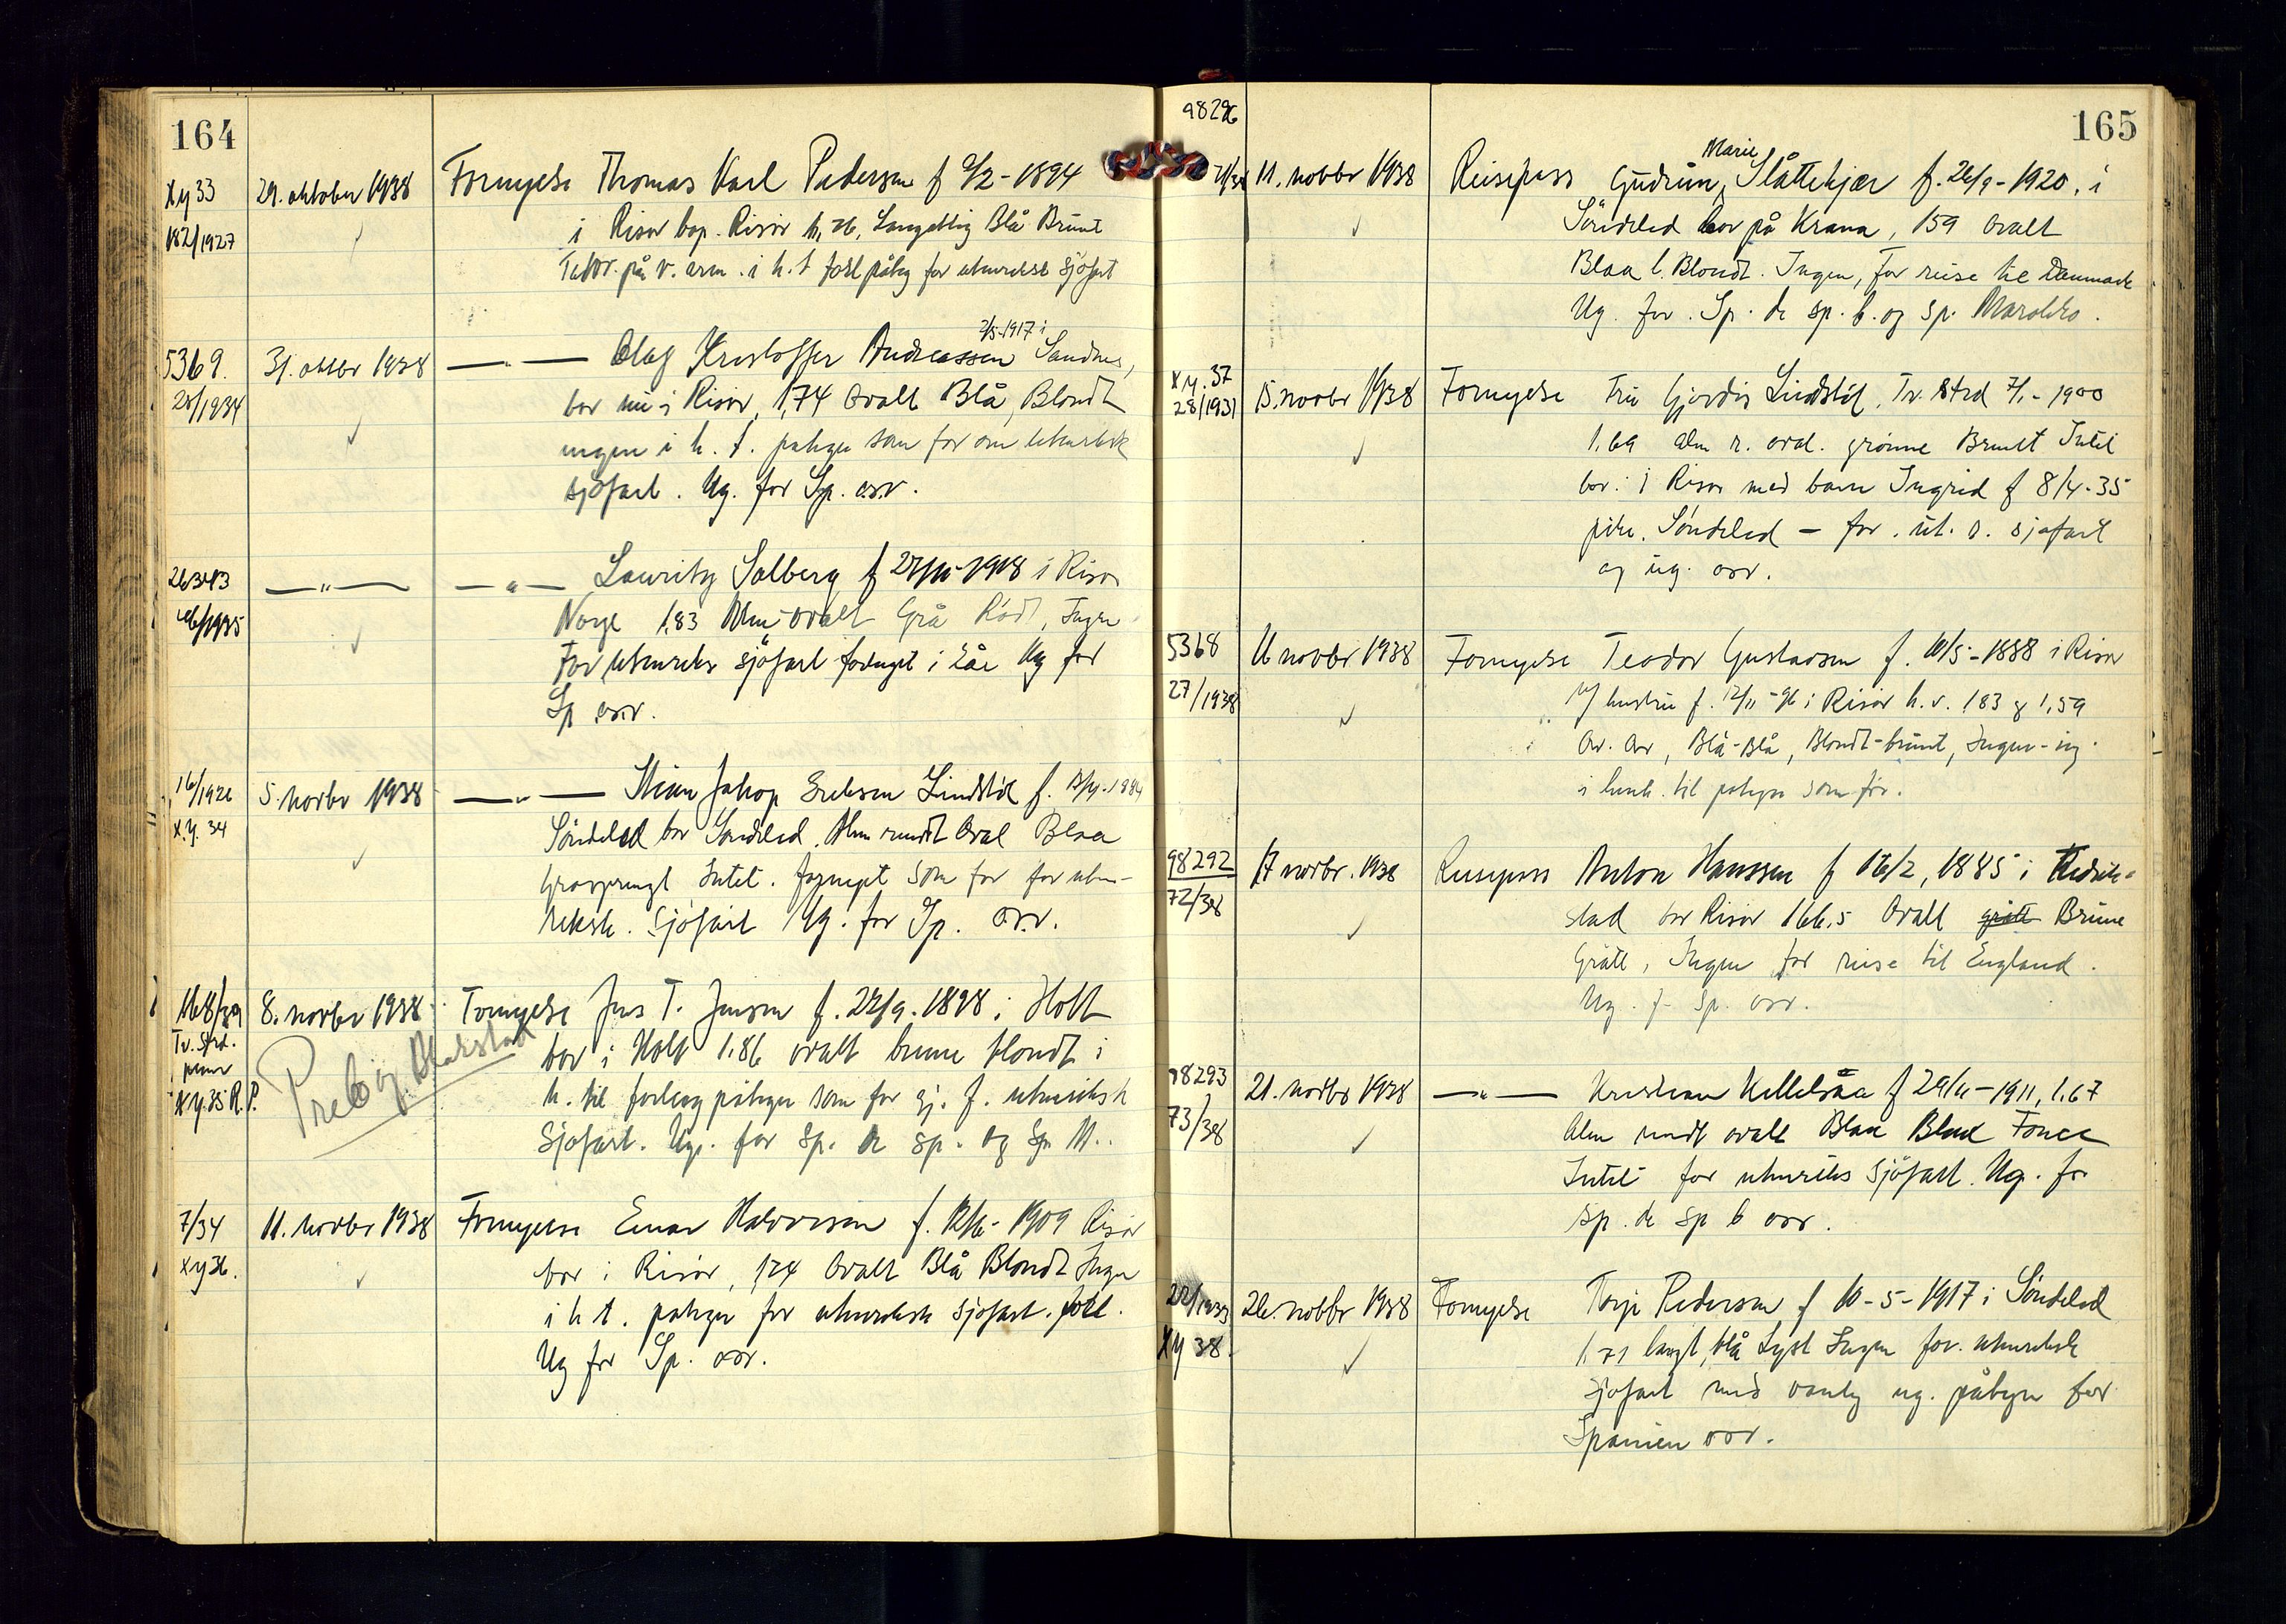 164
Xy 33
182/1927
29. oktober 1938
Fornyelse Thomas Karl Pedersen f 9/2-1894
i Risør bop. Risør h, 76, Langaktig Blå Brunt
Tatov. på v. arm. i h. t forl påteg for utenriksk sjøfart
5369.
31. oktbr 1938
2/5-1917 i
—„— Olaf Kristoffer Andreassen Sandnes,
bor nu i Risør, 1,74 Ovalt Blå, Blondt
ingen i h. t. potegn som før om utenriksk
sjøfart. Ug. for Sp. osv.
26343
—„—
—„— Lauritz Solberg f 1918 i Risør
Norge 1,83 Alm-ovalt Grå Rødt, Ingen
For utenriks sjøfart fornyet i 2 år Ug for
Sp osv.
16/1926
X.y. 34
5. novbr 1938
—„— Jakop Eriksen Lindstøl f.
Søndeled bor Søndeled. Alm rundt Oval Blaa
Graasprengt Intet. fornyet som før for uten-
riksk. Sjøfart Ug. for Sp. osv.
168/29
Tv.strd.
Xy.35 R.P.
8. novbr 1938
Fornyelse Jens T. Jensen f. 22/9. 1898 i Holt
bor i Holt 1.86 ovalt brune blondt i
h. til forlag påtegn som før gj. f. utenriksk
Sjøfart. Ug. for Sp. de sp. og Sp M..
7/34
Xy 36.
11. novbr 1938
Fornyelse Einar Halvorsen f. 12/6-1909 Risør
bor i Risør, 1,74 Ovalt Blå Blondt Ingen
i h t. potegn for utenriksk sjøfart. forl.
Ug for Sp. osv.
165
98296
11. novbr 1938
Marie
Reisepass Gudrun Slåttekjær f. 26/9-1920. i
Søndeled bor på Krana, 159 Ovalt
Blaa l. Blondt. Ingen, for reise til Danmark
Ug. for. Sp. de sp. b. og sp. Marokko.
Xy. 37
28/1931
15. novbr 1938
Fornyelse Fru Hjørdis Lindstøl, Tv. Strd 7/1-1900
1.69 alm r. oval. grønne Brunt Intet
bor i Risør med barn Ingrid f 8/4-35
pike. Søndeled — for. ut. r. sjøfart
og ug. osv.
5368
27/1938
16 novbr 1938
Fornyelse Teodor Gustavsen f. 10/5-1888 i Risør
m/ hustru f. 12/11-96 i Risør h. v. 183 og 1,59
Ov. Ov, Blå-Blå, Blondt-brunt, Ingen-ing
i henh. til potegn som før.
98292
72/38
17 novbr. 1938
Reisepass Anton Hanssen f 16/2, 1885 i Fredrik-
stad bor Risør 166.5 Ovalt grått Brune
Grått, Ingen for reise til England.
Ug. f. Sp. osv.
98293
73/38
21. novbr 1938
—„— Kristian Kellelsaa f 29/11-1911, 1.67
Alm rundt ovalt Blaa
Intet for utenriks Sjøfart. Ug. for
Sp. de sp b osv.
22/1933
Xy 38.
26. novbr 1938
Fornyelse Terje Pedersen f 10-5-1917 i Søndeled
1.71 langt, blå Lyst Ingen for. utenriksk
sjøfart med vanlig ug. påtegn for
Spanien osv.